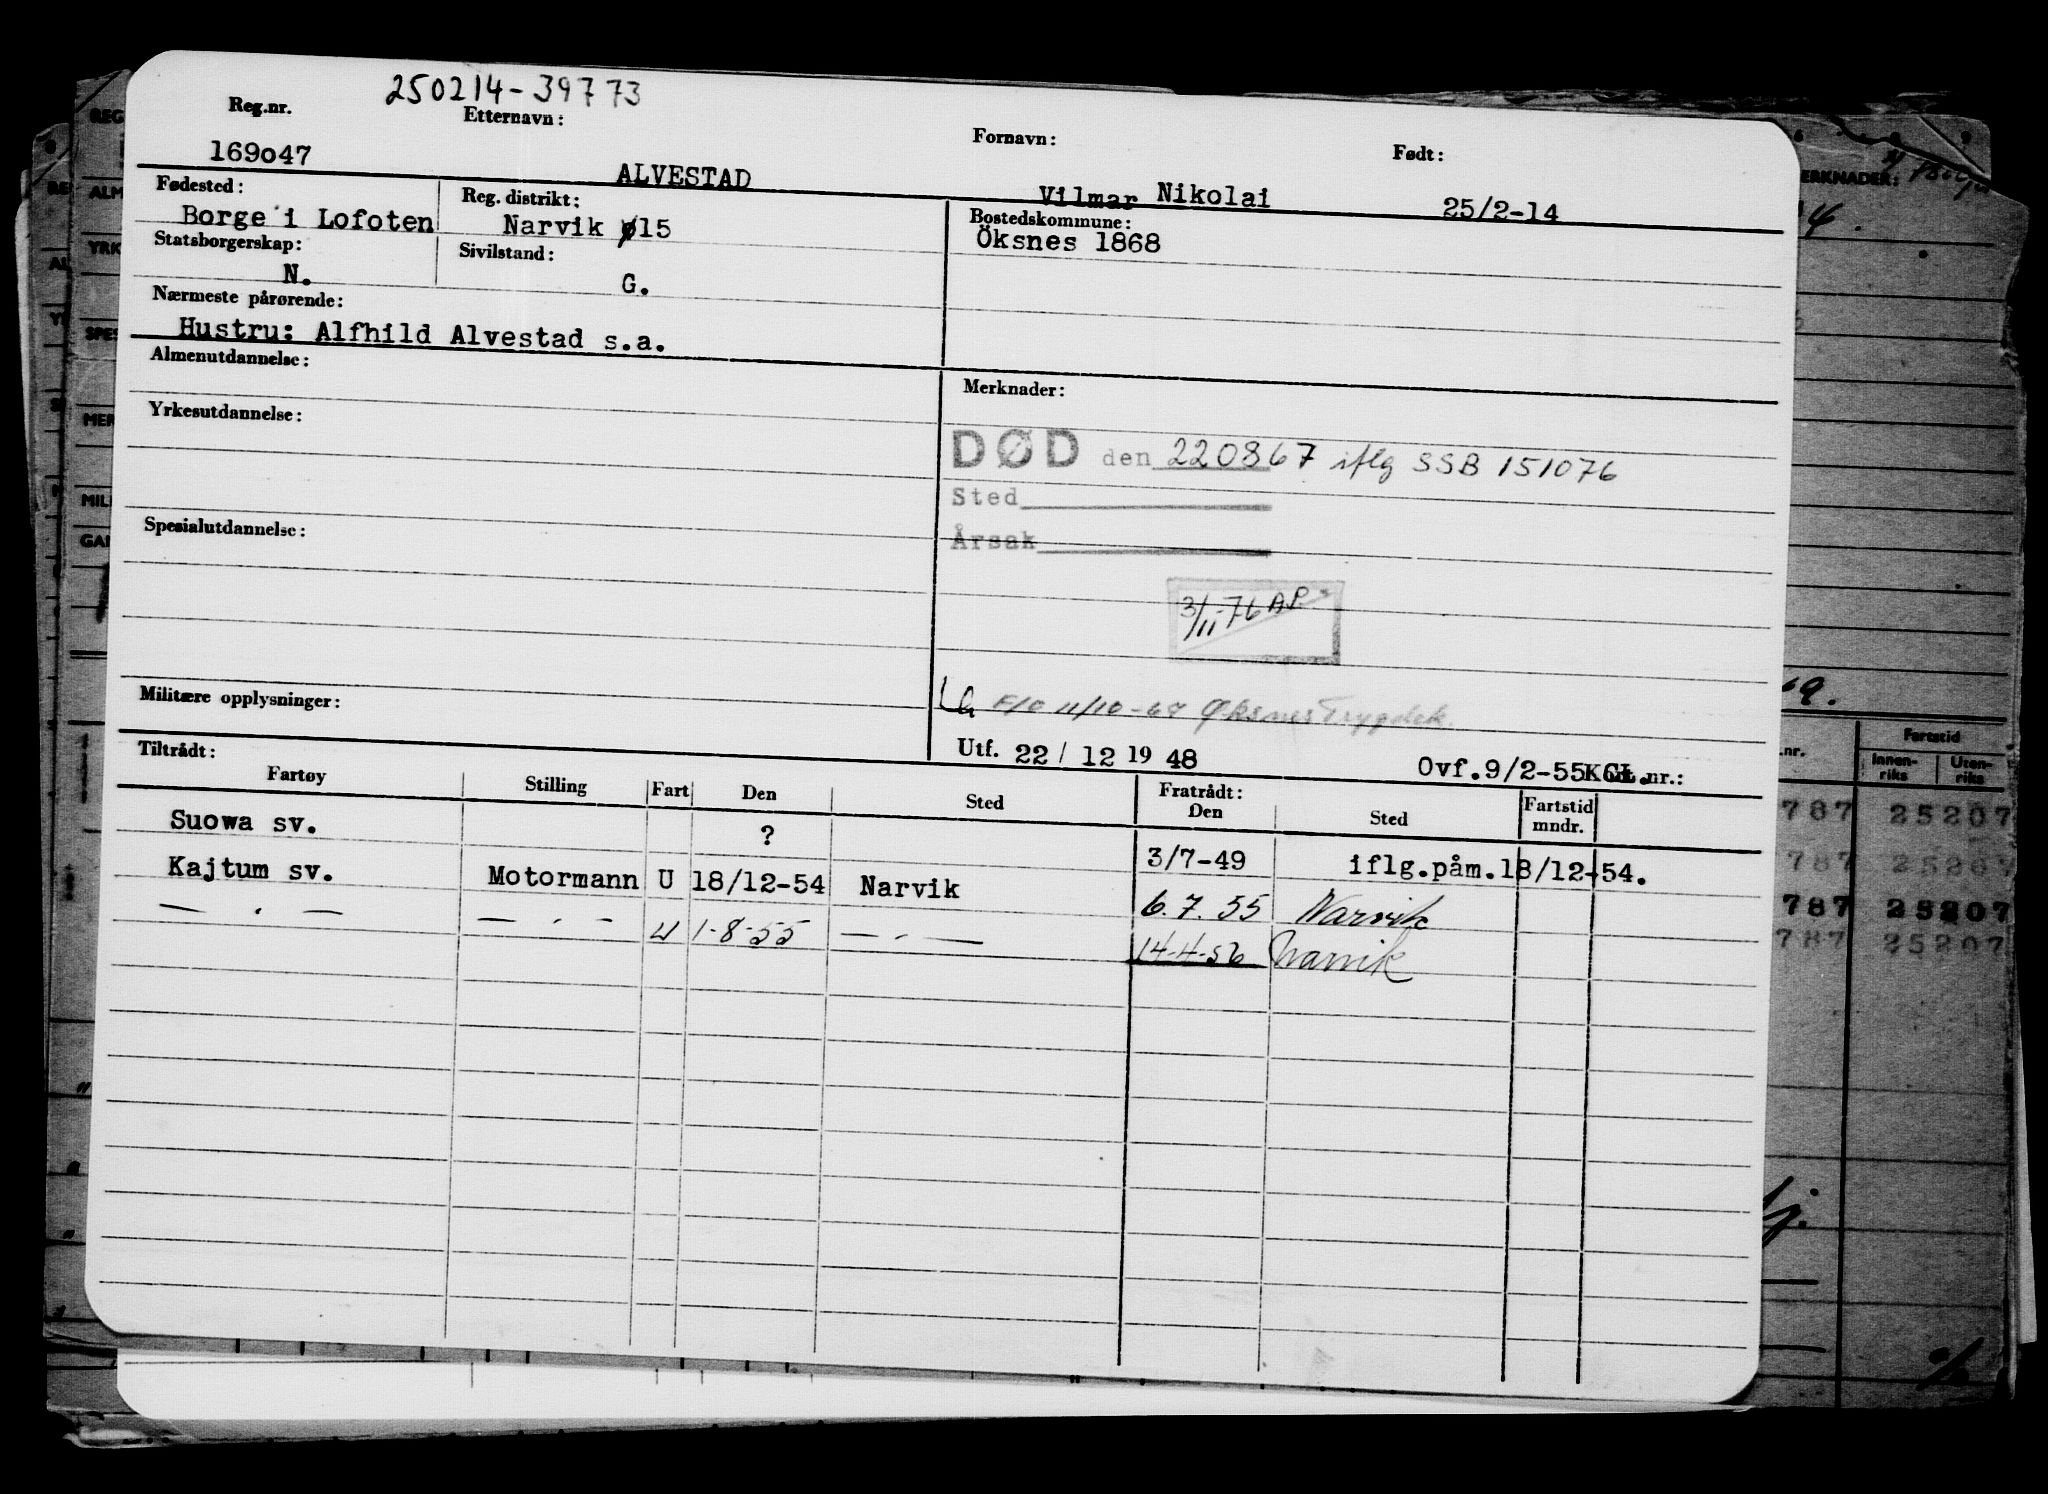 250214-39773
Reg.nr. Etternavn: Fornavn: Født:
169o47 ALVESTAD Vilmar Nikolai 25/2-14
Fødested: Reg. distrikt: Bostedskommune:
Borge i Lofoten Narvik ø15 Öksnes 1868
Statsborgerskap: Sivilstand:
N. G.
Nærmeste pårørende:
Hustru: Alfhild Alvestad s.a.
Almenutdannelse: Merknader:
Yrkesutdannelse:
DØD den 220867 iflg SSB 151076
Sted
Årsak
Spesialutdannelse:
3/11-76 AP.
Militære opplysninger:
F/O 11/10-67 Øksnes Trygdek.
Utf. 22 / 12 19 48 Ovf.9/2-55 GL. Kort nr.:
Tiltrådt: Fratrådt:
Fartøy Stilling Fart Den Sted Den Sted Fartstid mndr.
Suowa sv. ? 3/7-49 iflg.påm.18/12-54.
Kajtum sv. Motormann U 18/12-54 Narvik 6.7.55 Narvik
— . — — . — U 1-8-55 — . — 14-4-56 Narvik
MERKNADER:
Fartstid
Innen-riks Uten-riks
787 25207
787 25207
787 25207
787 25207